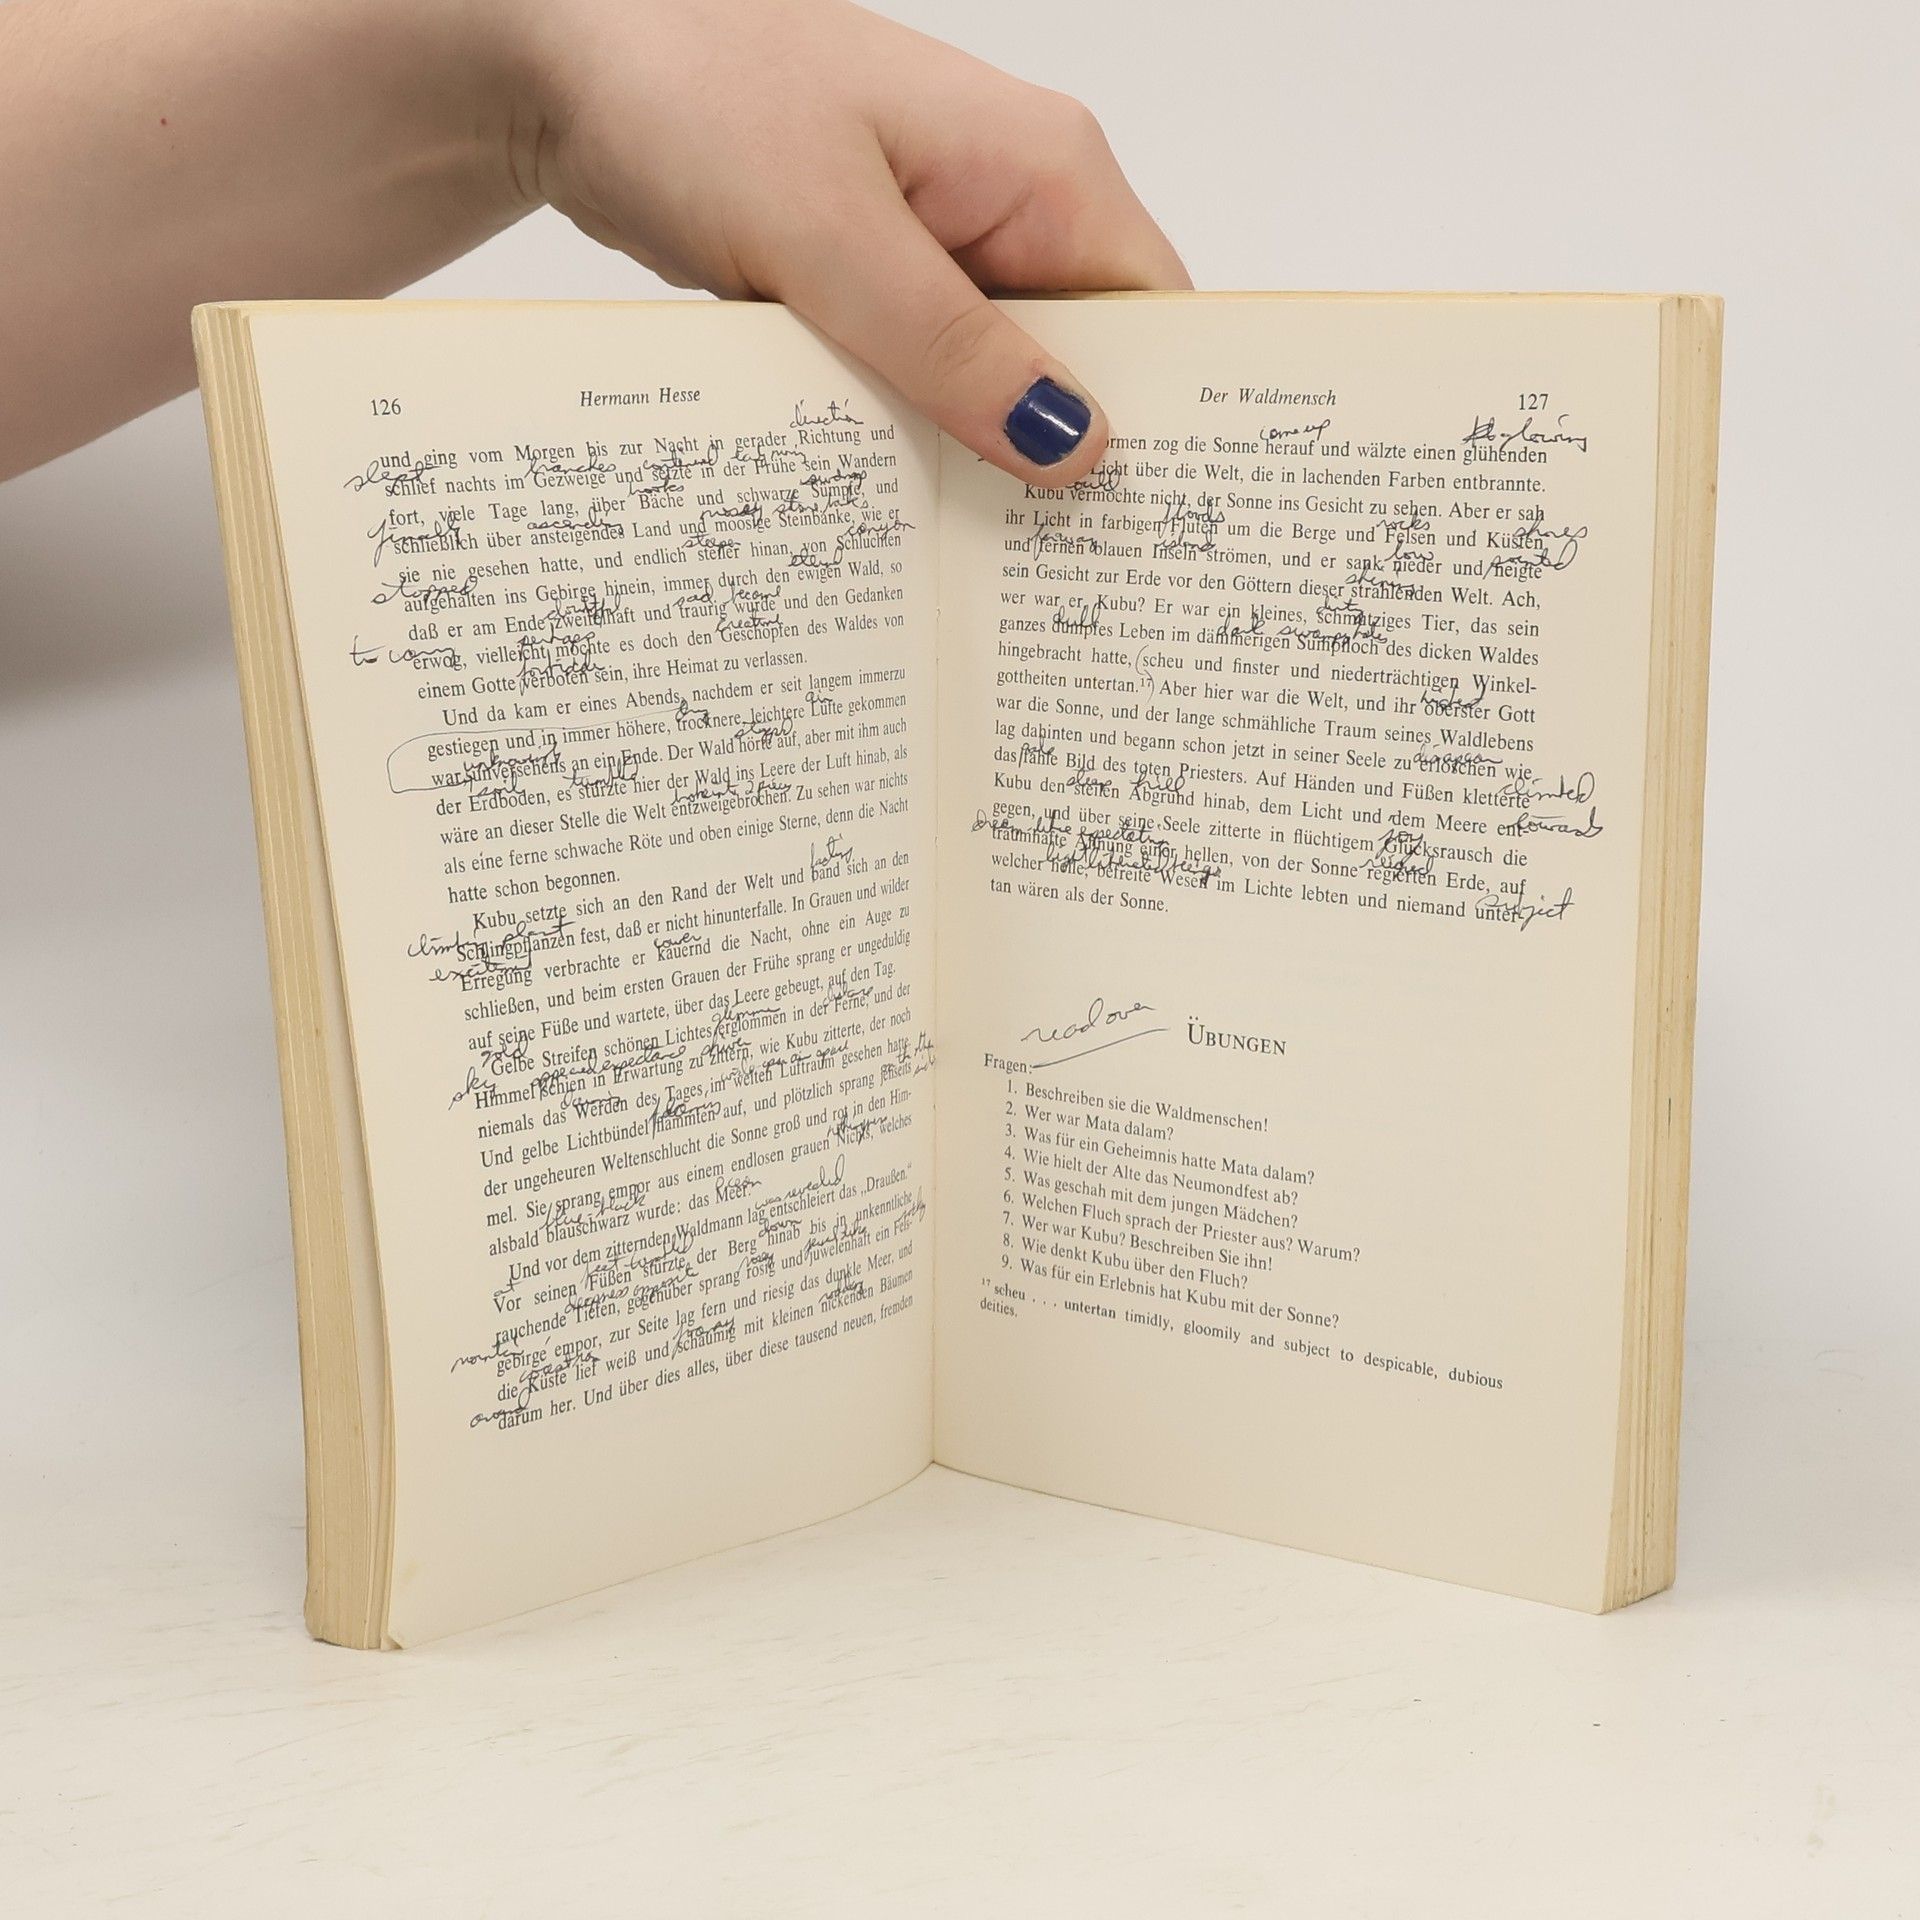 126 Hermann Hesse
direction
und ging vom Morgen bis zur Nacht in gerader Richtung und
slept branches continued
schlief nachts im Gezweige und setzte in der Frühe sein Wandern
swamp
fort, viele Tage lang, über Bäche und schwarze Sümpfe, und
finally ascending mossy stone banks
schließlich über ansteigendes Land und moosige Steinbänke, wie er
steeper canyon
sie nie gesehen hatte, und endlich steiler hinan, von Schluchten
stopped eternal
aufgehalten ins Gebirge hinein, immer durch den ewigen Wald, so
doubtful sad became
daß er am Ende zweifelhaft und traurig wurde und den Gedanken
perhaps creature
erwog, vielleicht möchte es doch den Geschöpfen des Waldes von
forbidden
einem Gotte verboten sein, ihre Heimat zu verlassen.
Und da kam er eines Abends, nachdem er seit langem immerzu
dry air
gestiegen und in immer höhere, trocknere, leichtere Lüfte gekommen
stopped
war, unversehens an ein Ende. Der Wald hörte auf, aber mit ihm auch
soil tumbled
der Erdboden, es stürzte hier der Wald ins Leere der Luft hinab, als
wäre an dieser Stelle die Welt entzweigebrochen. Zu sehen war nichts
als eine ferne schwache Röte und oben einige Sterne, denn die Nacht
hatte schon begonnen.
Kubu setzte sich an den Rand der Welt und band sich an den
climbing plant
Schlingpflanzen fest, daß er nicht hinunterfalle. In Grauen und wilder
cower
Erregung verbrachte er kauernd die Nacht, ohne ein Auge zu
schließen, und beim ersten Grauen der Frühe sprang er ungeduldig
auf seine Füße und wartete, über das Leere gebeugt, auf den Tag.
distance
Gelbe Streifen schönen Lichtes erglommen in der Ferne, und der
sky appeared expectance shiver
Himmel schien in Erwartung zu zittern, wie Kubu zitterte, der noch
niemals das Werden des Tages im weiten Luftraum gesehen hatte.
Und gelbe Lichtbündel flammten auf, und plötzlich sprang jenseits
der ungeheuren Weltenschlucht die Sonne groß und rot in den Him-
mel. Sie sprang empor aus einem endlosen grauen Nichts, welches
blue-black
alsbald blauschwarz wurde: das Meer.
was revealed
Und vor dem zitternden Waldmann lag entschleiert das „Draußen.“
at feet tumbled down
Vor seinen Füßen stürzte der Berg hinab bis in unkenntliche
opposite rosy
rauchende Tiefen, gegenüber sprang rosig und juwelenhaft ein Fels-
gebirge empor, zur Seite lag fern und riesig das dunkle Meer, und
foamy nodding
die Küste lief weiß und schaumig mit kleinen nickenden Bäumen
around
darum her. Und über dies alles, über diese tausend neuen, fremden
Der Waldmensch 127
come up glowing
zog die Sonne herauf und wälzte einen glühenden
Licht über die Welt, die in lachenden Farben entbrannte.
could
Kubu vermochte nicht, der Sonne ins Gesicht zu sehen. Aber er sah
floods rocks shores
ihr Licht in farbigen Fluten um die Berge und Felsen und Küsten
faraway island low
und fernen blauen Inseln strömen, und er sank nieder und neigte
shining
sein Gesicht zur Erde vor den Göttern dieser strahlenden Welt. Ach,
dirty
wer war er, Kubu? Er war ein kleines, schmutziges Tier, das sein
dull dark swampholes
ganzes dumpfes Leben im dämmerigen Sumpfloch des dicken Waldes
hingebracht hatte, (scheu und finster und niederträchtigen Winkel-
gottheiten untertan.¹⁷) Aber hier war die Welt, und ihr oberster Gott
war die Sonne, und der lange schmähliche Traum seines Waldlebens
disappear
lag dahinten und begann schon jetzt in seiner Seele zu erlöschen wie
pale
das fahle Bild des toten Priesters. Auf Händen und Füßen kletterte
climbed
steep hill
Kubu den steilen Abgrund hinab, dem Licht und dem Meere ent-
towards
gegen, und über seine Seele zitterte in flüchtigem Glücksrausch die
dream-like expectation
traumhafte Ahnung einer hellen, von der Sonne regierten Erde, auf
light liberated beings
welcher helle, befreite Wesen im Lichte lebten und niemand unter-
subject
tan wären als der Sonne.
read over
ÜBUNGEN
Fragen:
1. Beschreiben sie die Waldmenschen!
2. Wer war Mata dalam?
3. Was für ein Geheimnis hatte Mata dalam?
4. Wie hielt der Alte das Neumondfest ab?
5. Was geschah mit dem jungen Mädchen?
6. Welchen Fluch sprach der Priester aus? Warum?
7. Wer war Kubu? Beschreiben Sie ihn!
8. Wie denkt Kubu über den Fluch?
9. Was für ein Erlebnis hat Kubu mit der Sonne?
¹⁷ scheu . . . untertan timidly, gloomily and subject to despicable, dubious
deities.